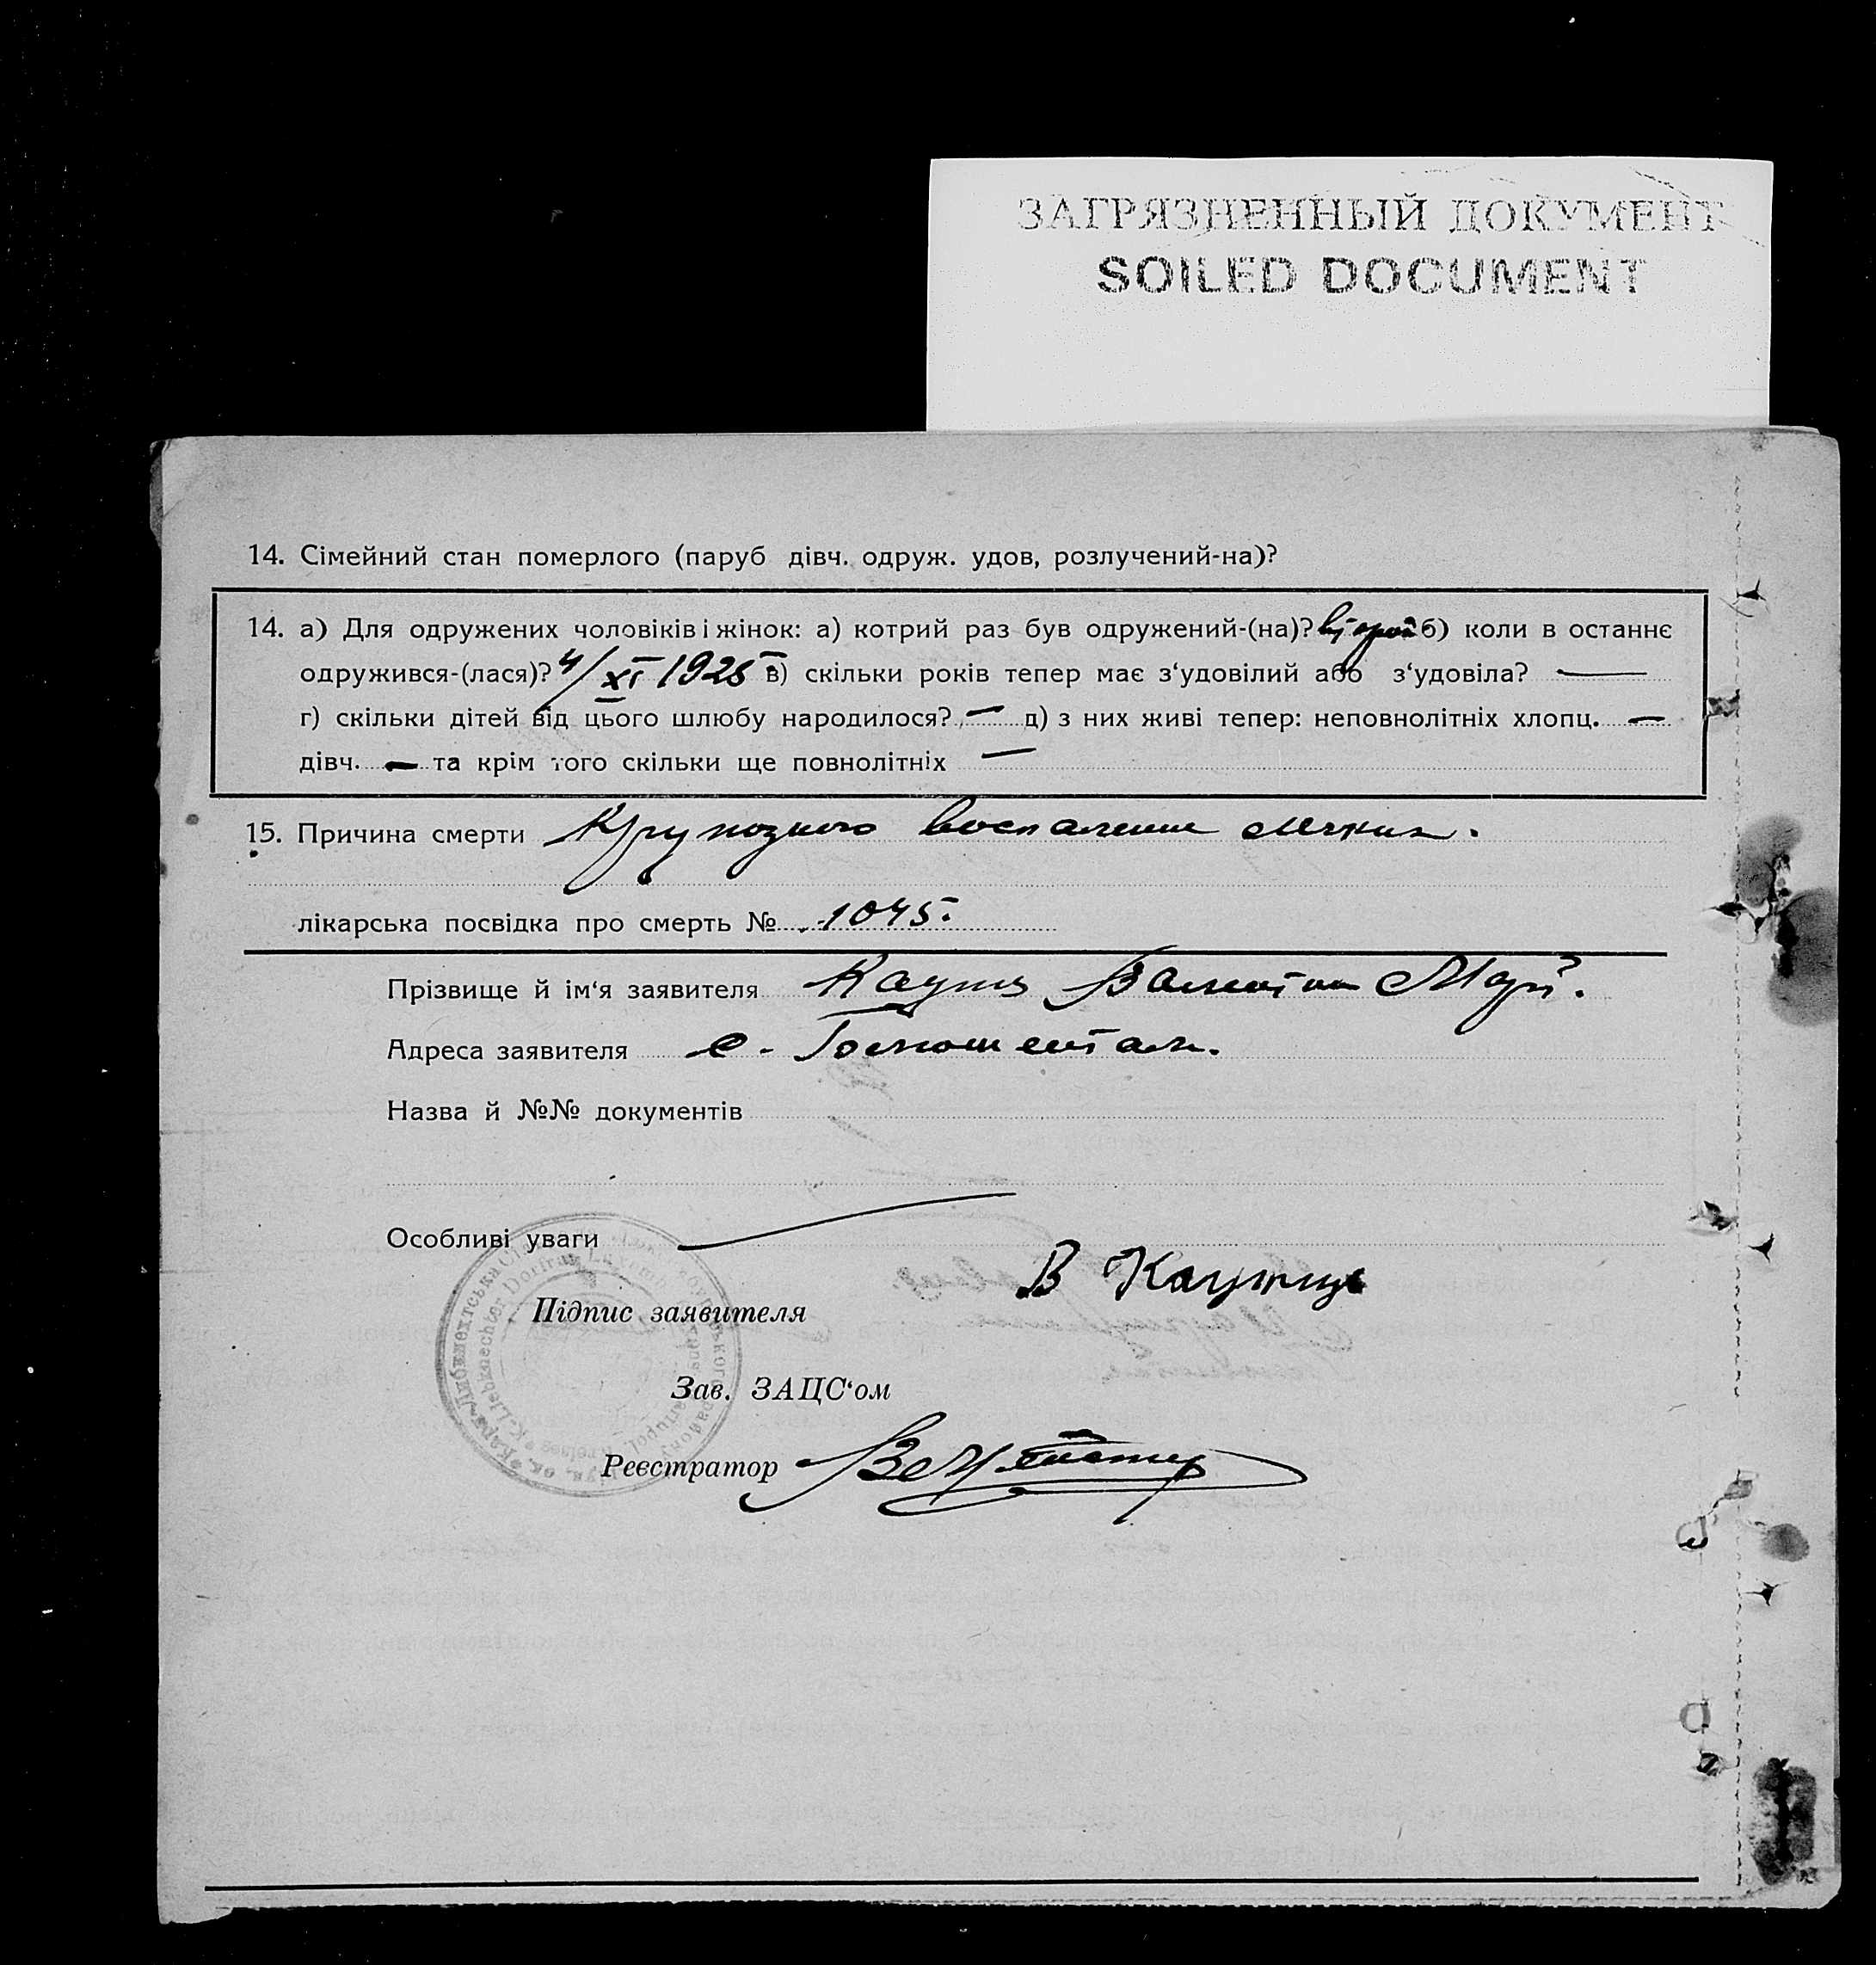 ЗАГРЯЗНЕННЫЙ ДОКУМЕНТ
SOILED DOCUMENT
14. Сімейний стан померлого (паруб дівч. одруж. удов, розлучений-на)?
14. а) Для одружених чоловіків і жінок: а) котрий раз був одружений-(на)? второй б) коли в останнє
одружився-(лася)? 4/XI 1925 в) скільки років тепер має з‘удовілий або з‘удовіла? —
г) скільки дітей від цього шлюбу народилося? — д) з них живі тепер: неповнолітніх хлопц. —
дівч. — та крім того скільки ще повнолітніх —
15. Причина смерти Крупозного воспаление легких.
лікарська посвідка про смерть № 1045.
Прізвище й ім‘я заявителя Валентин
Адреса заявителя с.
Назва й №№ документів
Особливі уваги
В
Підпис заявителя
Зав. ЗАЦС‘ом
Реєстратор